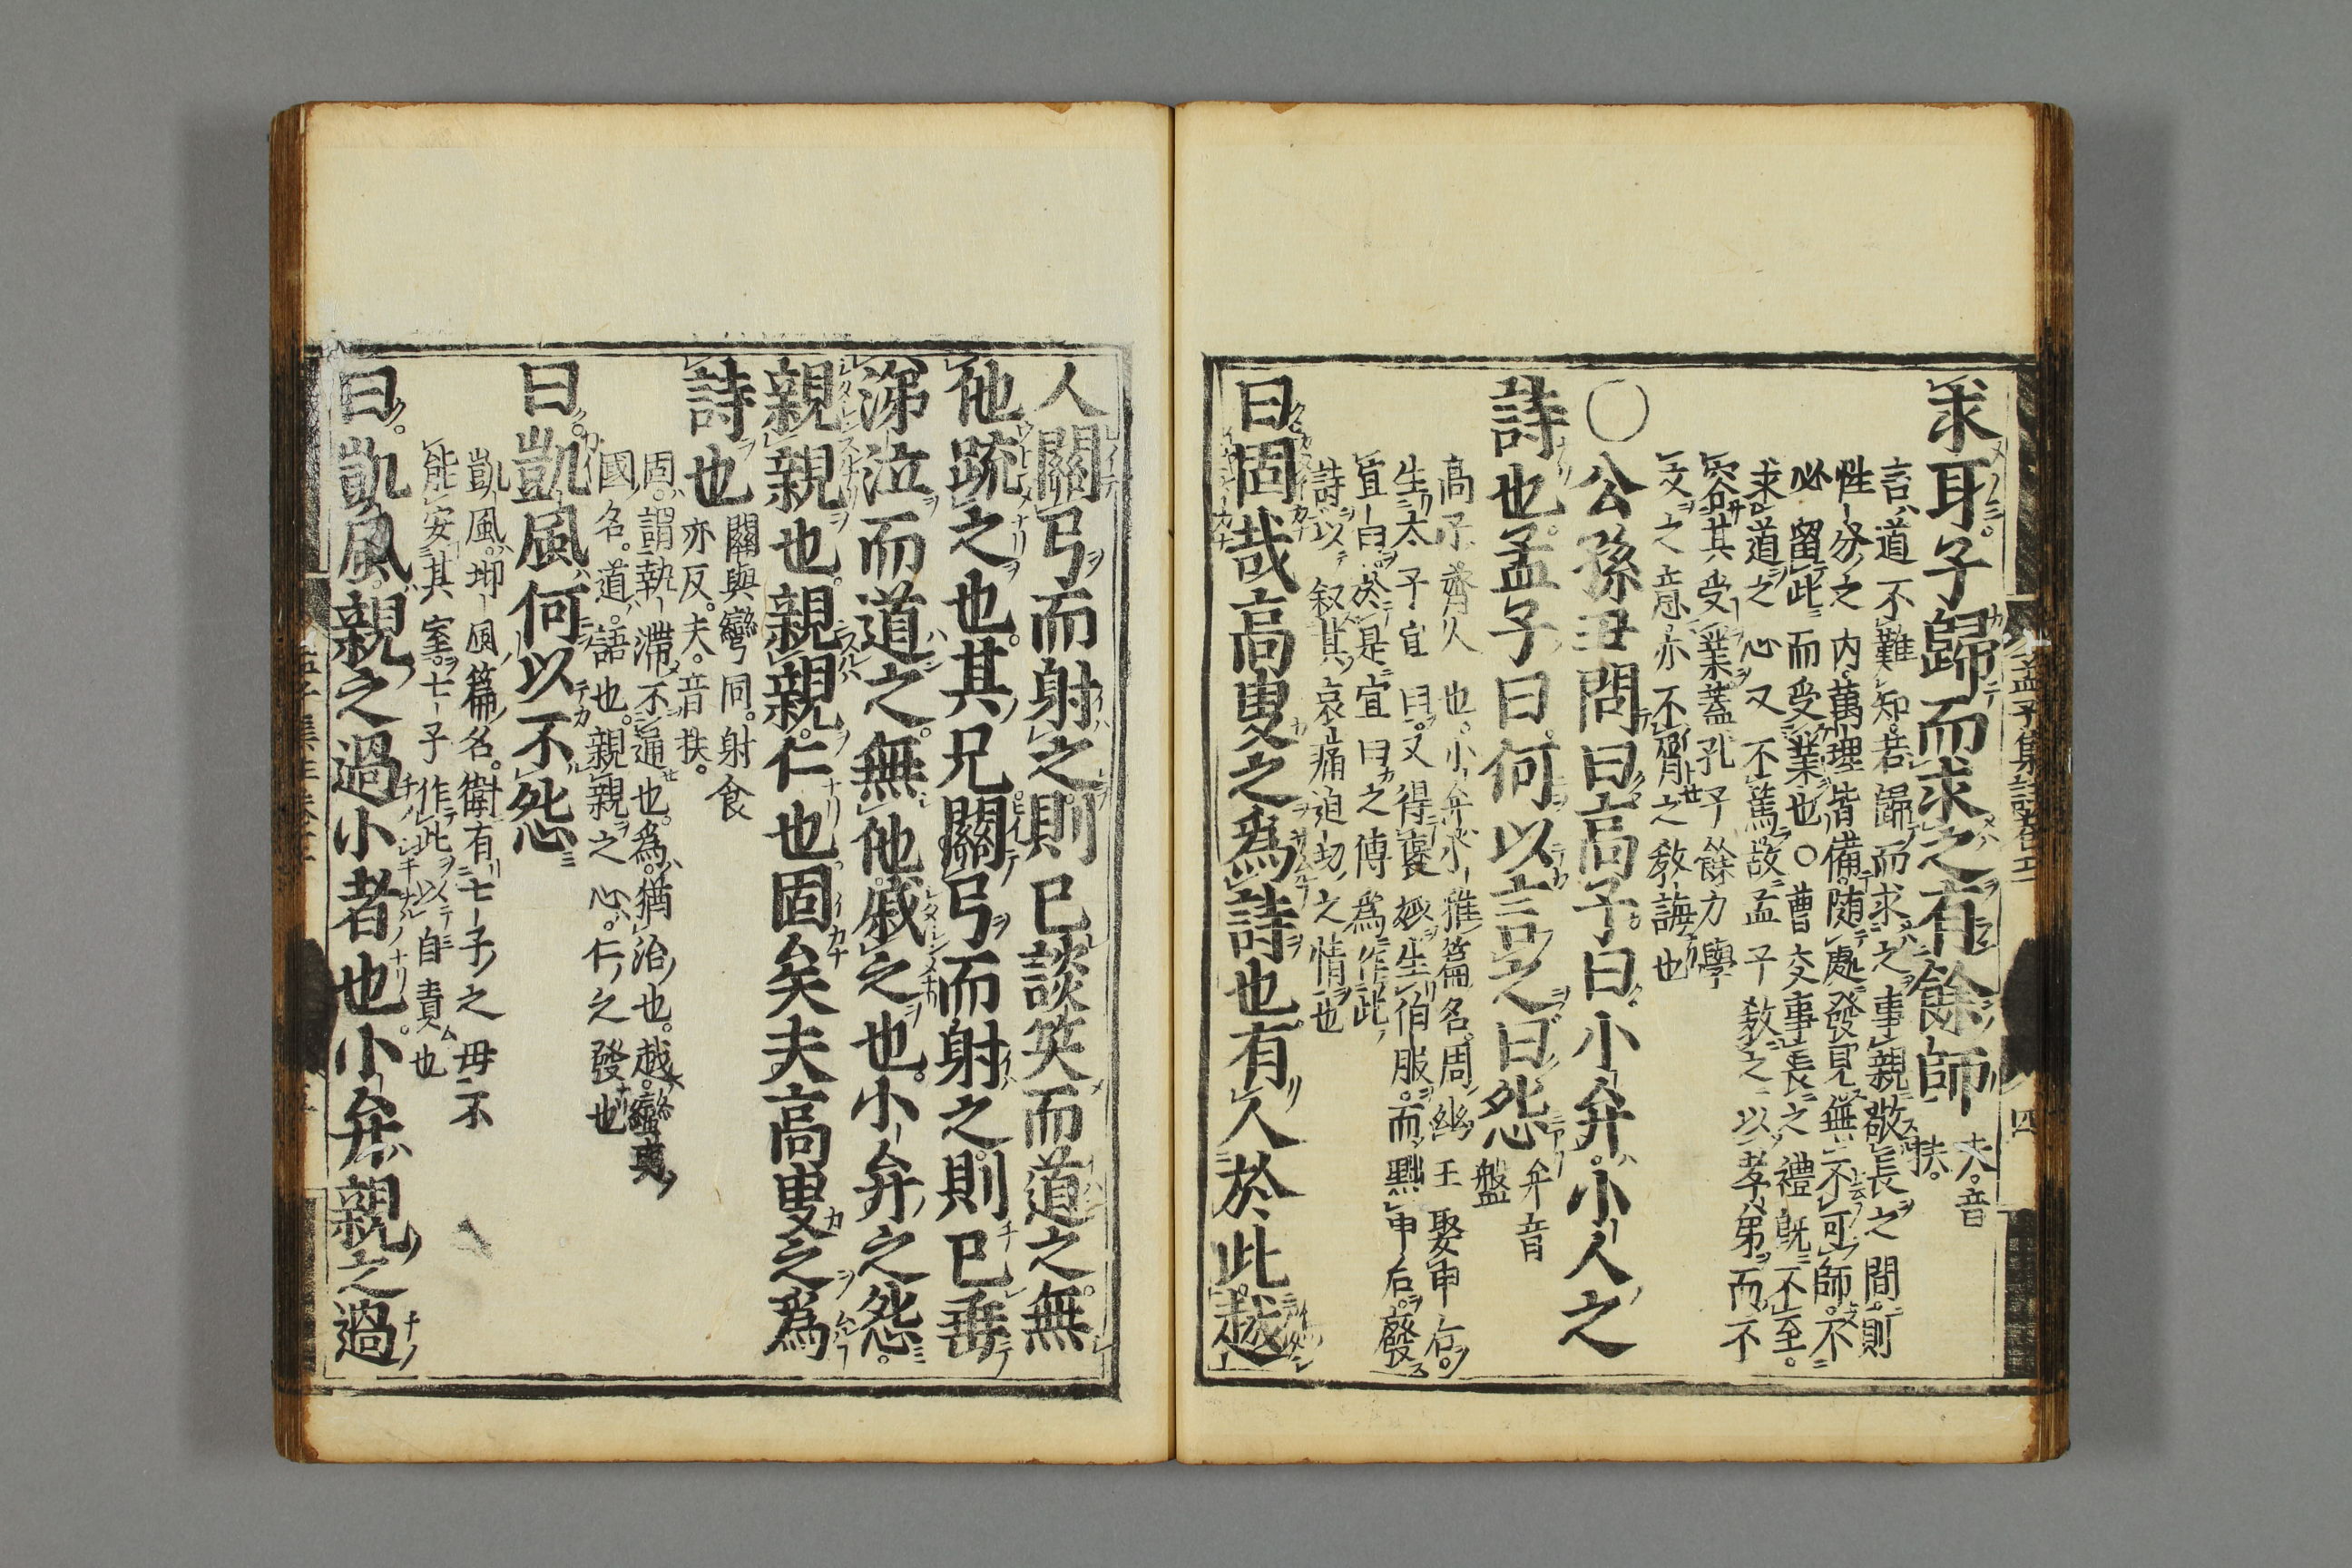 求耳子歸而求之有餘師
夫音
扶
言道不難知若歸而求之事親敬長之間則
性分之内萬理皆備随處發見無不可師不
必留此而受業也○曹交事長之禮既不至
求道之心又不篤故孟子教之以孝弟而不
容其受業蓋孔子餘力學
文之意亦不屑之教誨也
○公孫丑問曰高子曰小弁小人之
詩也孟子曰何以言之曰怨
弁音
盤
高子齊人也小弁小雅篇名周幽王娶申后
生太子宜臼又得襃姒生伯服而黜申后廢
宜臼於是宜臼之傅爲作此
詩以叙其哀痛迫切之情也
曰固哉高叟之爲詩也有人於此越
人關弓而射之則已談笑而道之無
他疏之也其兄關弓而射之則已垂
涕泣而道之無他戚之也小弁之怨
親親也親親仁也固矣夫高叟之爲
詩也
關與彎同射食
亦反夫音扶
固謂執滯不通也爲猶治也越蠻夷
國名道語也親親之心仁之發也
曰凱風何以不怨
凱風邶風篇名衛有七子之母不
能安其室七子作此以自責也
曰凱風親之過小者也小弁親之過